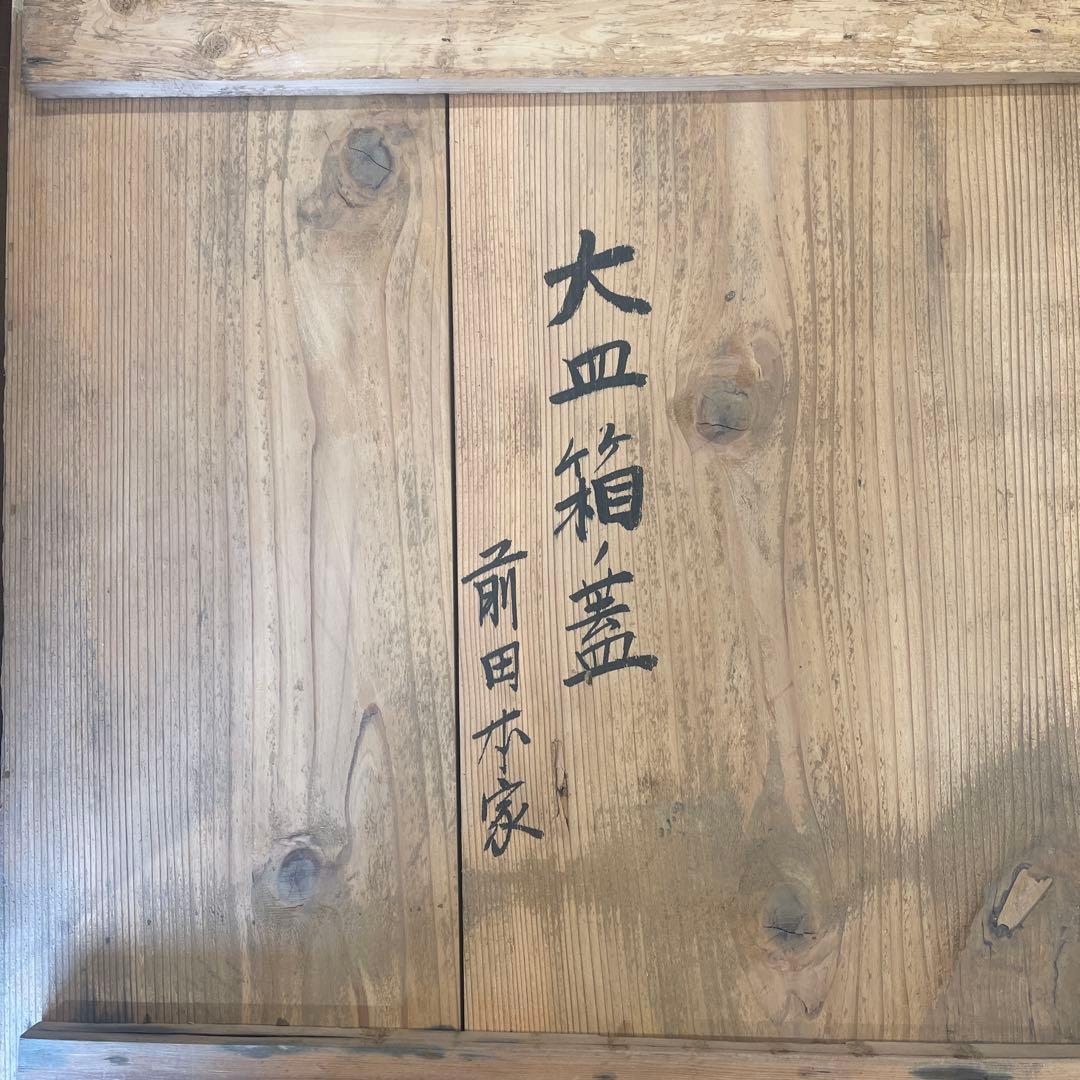 大皿箱ノ蓋
前田本家